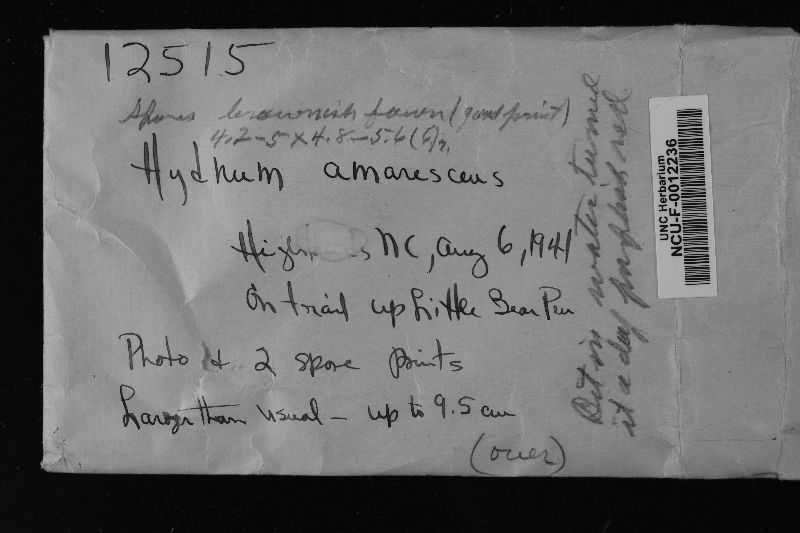 12515
Spores brownish fawn (good print)
4.2-5 x 4.8-5.6 (6)
Hydnum amarescens
NC, Aug 6, 1941
On trail up Little Bear Pen
Photo & 2 spore prints
Larger than usual - up to 9.5 cm
(over)
Bit in water turned
it a day purplish red
UNC Herbarium
NCU-F-0012236